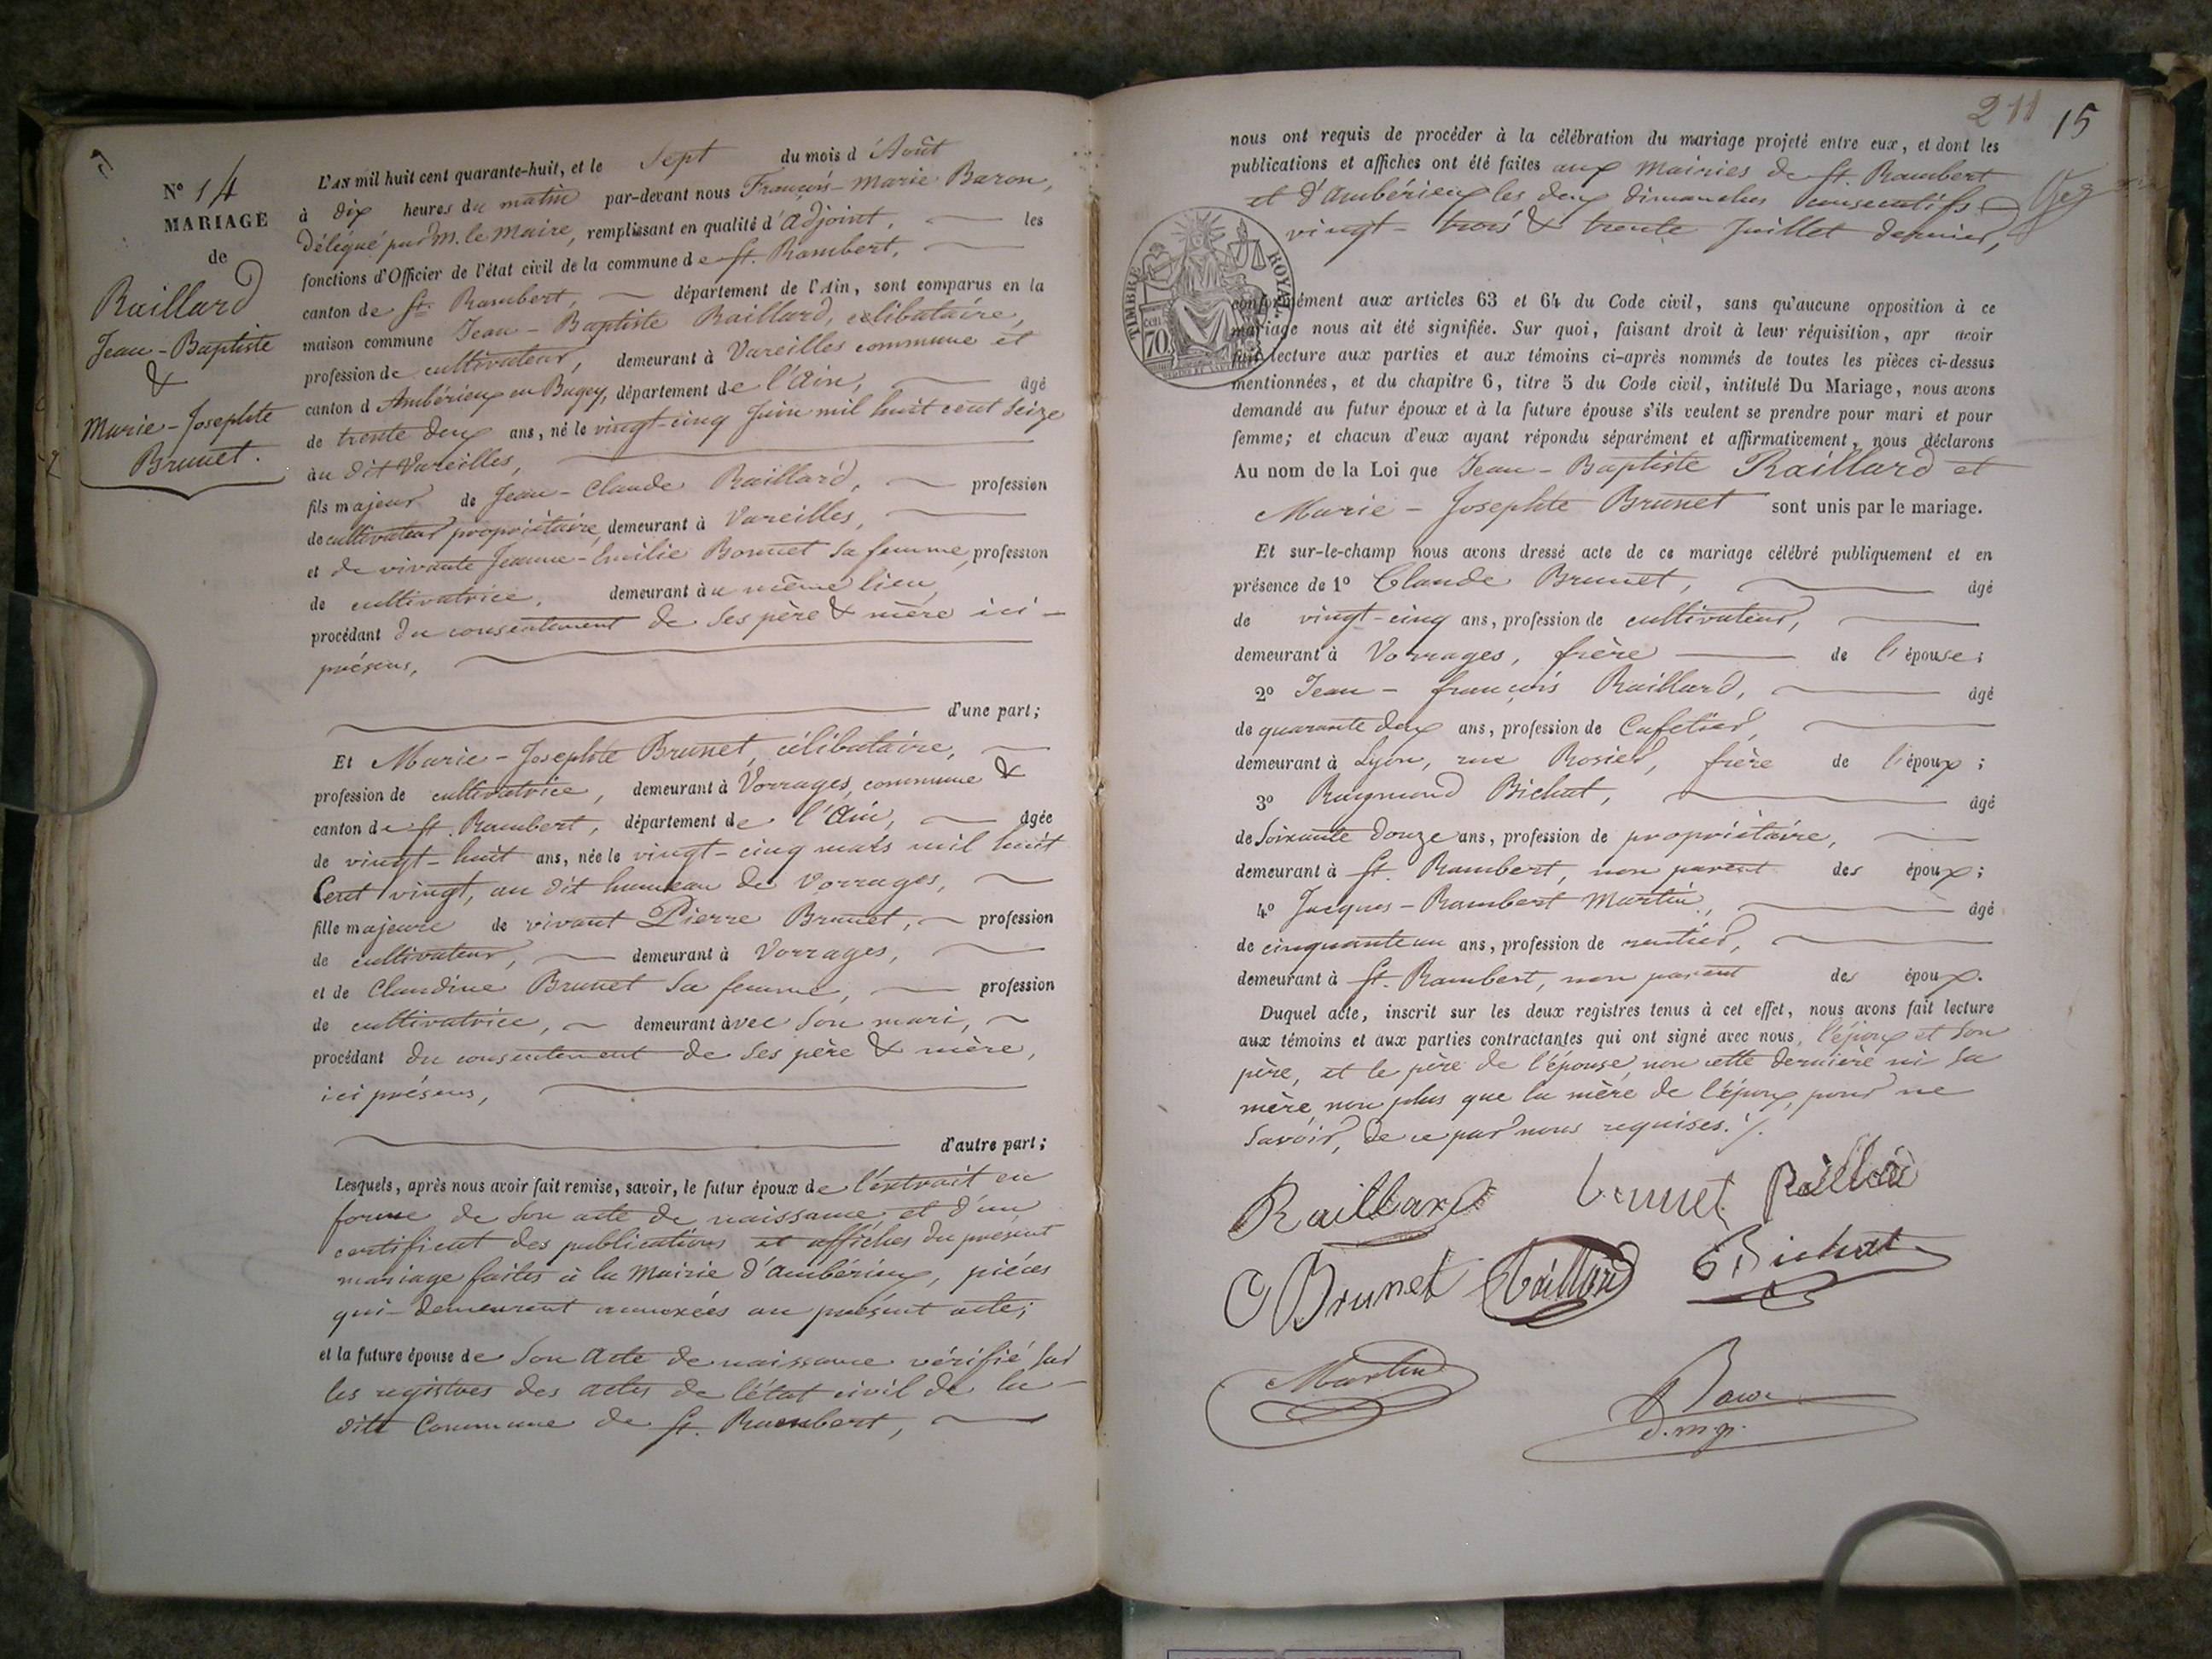 N° 14
MARIAGE
de
Raillard
Jean-Baptiste
&
Marie-Josephte
Brunet.
L'AN mil huit cent quarante-huit, et le Sept du mois d'Août
à dix heures du matin par-devant nous François-Marie Baron,
délégué par M. le Maire, remplissant en qualité d'adjoint, les
fonctions d'Officier de l'état civil de la commune de St. Rambert,
canton de St. Rambert, département de l'Ain, sont comparus en la
maison commune Jean-Baptiste Raillard, célibataire,
profession de cultivateur, demeurant à Vareilles commune et
canton d'Ambérieux en Bugey, département de l'Ain, âgé
de trente deux ans, né le vingt-cinq Juin mil huit cent Seize
au dit Vareilles,
fils majeur de Jean-Claude Raillard, profession
de cultivateur propriétaire, demeurant à Vareilles,
et de vivante Jeanne-Emilie Bonnet sa femme, profession
de cultivatrice, demeurant au même lieu,
procédant du consentement de ses père & mère ici-
présens,
d'une part;
Et Marie-Josephte Brunet, célibataire,
profession de cultivatrice, demeurant à Vorrages, commune &
canton de St. Rambert, département de l'Ain, âgée
de vingt-huit ans, née le vingt-cinq mars mil huit
Cent vingt, au dit hameau de Vorrages,
fille majeure de vivant Pierre Brunet, profession
de cultivateur, demeurant à Vorrages,
et de Claudine Brunet sa femme, profession
de cultivatrice, demeurant avec son mari,
procédant du consentement de ses père & mère,
ici présens,
d'autre part;
Lesquels, après nous avoir fait remise, savoir, le futur époux de l'extrait en
forme de son acte de naissance et d'un
certificat des publications et affiches du présent
mariage faites à la Mairie d'Ambérieux, pièces
qui demeurent annexées au présent acte;
et la future épouse de son acte de naissance vérifié sur
les registres des actes de l'état civil de la
dite Commune de St. Rambert,
211 15
nous ont requis de procéder à la célébration du mariage projeté entre eux, et dont les
publications et affiches ont été faites aux Mairies de St. Rambert
et d'Ambérieux les deux dimanches consécutifs
vingt-trois & trente Juillet dernier,
TIMBRE ROYAL
70
conformément aux articles 63 et 64 du Code civil, sans qu'aucune opposition à ce
mariage nous ait été signifiée. Sur quoi, faisant droit à leur réquisition, apr avoir
fait lecture aux parties et aux témoins ci-après nommés de toutes les pièces ci-dessus
mentionnées, et du chapitre 6, titre 5 du Code civil, intitulé Du Mariage, nous avons
demandé au futur époux et à la future épouse s'ils veulent se prendre pour mari et pour
femme; et chacun d'eux ayant répondu séparément et affirmativement, nous déclarons
Au nom de la Loi que Jean-Baptiste Raillard et
Marie-Josephte Brunet sont unis par le mariage.
Et sur-le-champ nous avons dressé acte de ce mariage célébré publiquement et en
présence de 1° Claude Brunet, âgé
de vingt-cinq ans, profession de cultivateur,
demeurant à Vorrages, frère de l'épouse;
2° Jean-françois Raillard, âgé
de quarante deux ans, profession de Cafetier,
demeurant à Lyon, rue Rosier, frère de l'époux;
3° Raymond Bichat, âgé
de soixante douze ans, profession de propriétaire,
demeurant à St. Rambert, non parent des époux;
4° Jacques-Rambert Martin, âgé
de cinquante un ans, profession de rentier,
demeurant à St. Rambert, non parent des époux.
Duquel acte, inscrit sur les deux registres tenus à cet effet, nous avons fait lecture
aux témoins et aux parties contractantes qui ont signé avec nous, l'époux et son
père, et le père de l'épouse, non cette dernière ni sa
mère, non plus que la mère de l'époux, pour ne
savoir, de ce par nous requises.
Raillard Brunet Raillard
C Brunet Raillard Bichat
Martin Baron